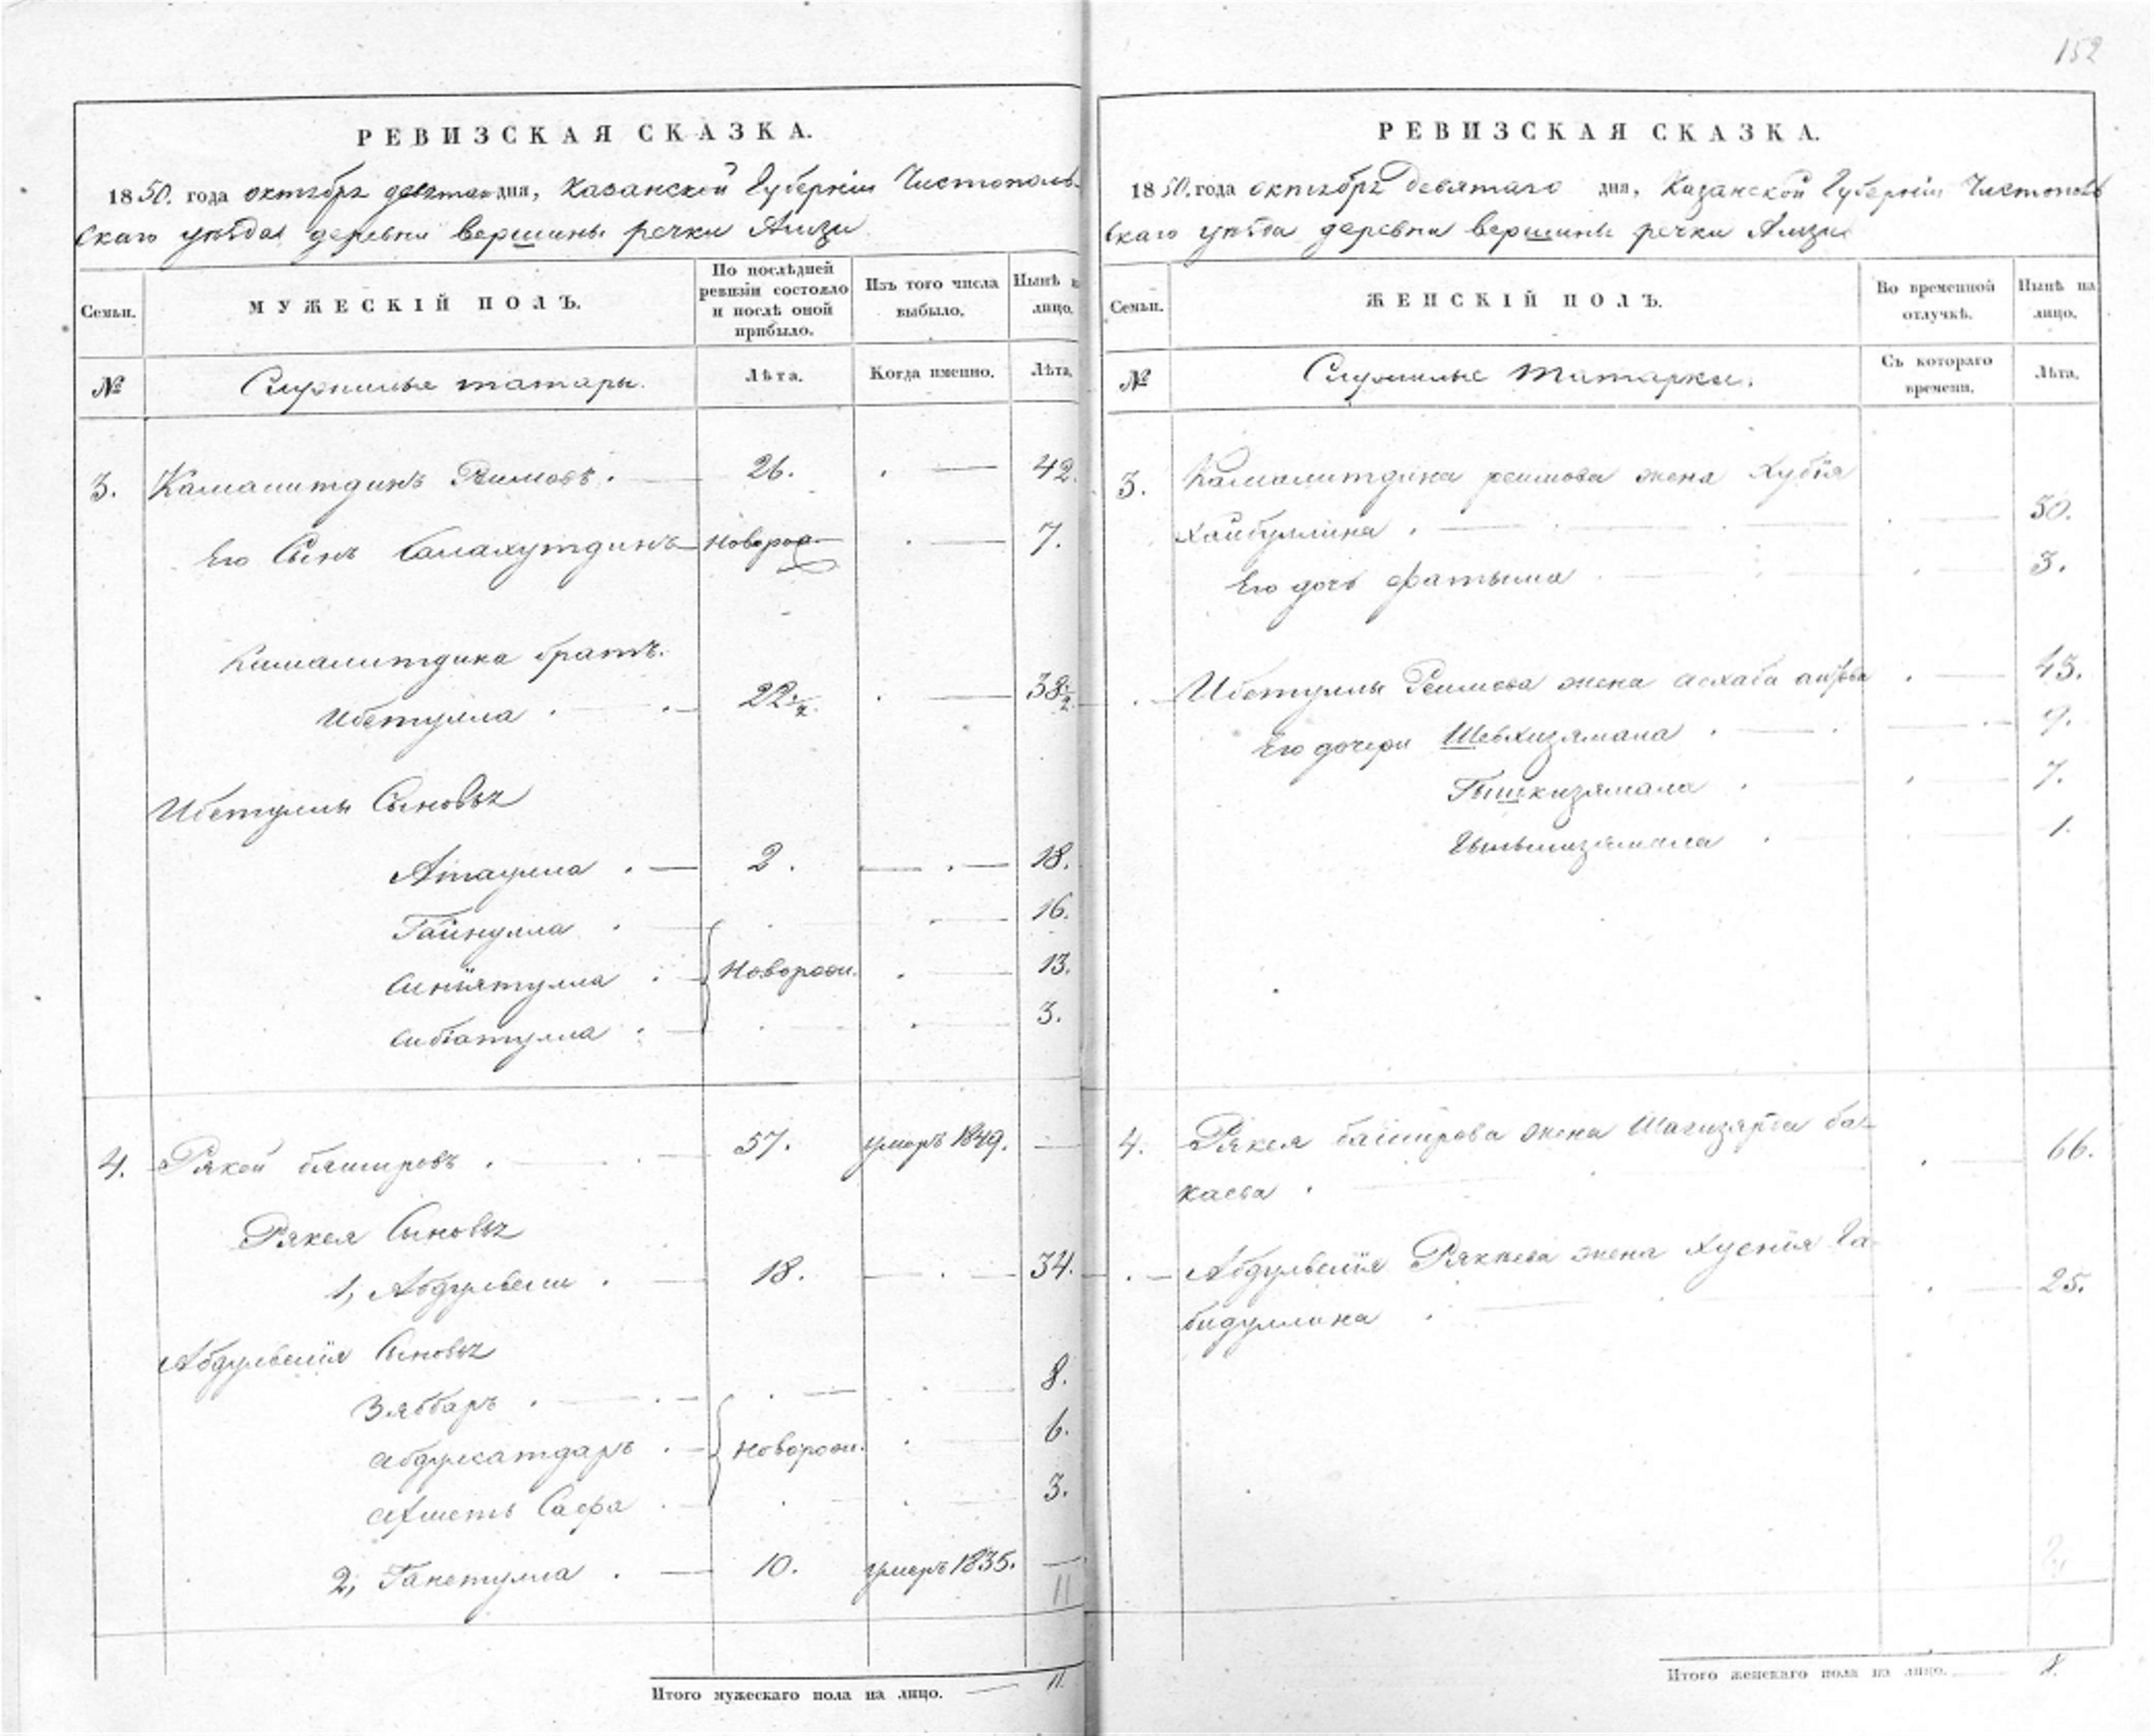 152
РЕВИЗСКАЯ СКАЗКА.
1850. года октября девятаго дня, Казанской Губерніи Чистополь-
скаго уѣзда деревни вершины речки Амзи
Семьи.
МУЖЕСКІЙ ПОЛЪ.
По послѣдней ревизіи состояло и послѣ оной прибыло.
Изъ того числа выбыло.
Нынѣ на лицо.
№
Служилые татары.
Лѣта.
Когда именно.
Лѣта.
3. Камалитдинъ Реимовъ. — 26. . — 42.
Его Сынъ Салахутдинъ — новорож. . — 7.
Камалитдина братъ.
Ибетулла . — 22 1/2. . — 38 1/2
Ибетуллы Сыновья
Атаулла . — 2. — . — 18.
Гайнулла . — . — 16.
Синіятулла . — новорож. . — 13.
Сибгатулла . — . . — 3.
4. Рякей бяшировъ . — 57. умеръ 1849. —
Рякея Сыновья
1, Абдулвели . — 18. — . — 34.
Абдулвелія Сыновья
Зяббаръ . — . — . — 8.
абдулкатдаръ . — новорож. . — 6.
Ахметь Сафа . — . . — 3.
2, Ганетулла . — 10. умеръ 1835. —
11
Итого мужескаго пола на лицо. — 11.
РЕВИЗСКАЯ СКАЗКА.
1850. года октября девятаго дня, Казанской Губерніи Чистополь
скаго уѣзда деревни вершины речки Амзи
Семьи.
ЖЕНСКІЙ ПОЛЪ.
Во временной отлучкѣ.
Нынѣ на лицо.
№
Служилые татарки.
Съ котораго времени.
Лѣта.
3. Камалитдина реимова жена Хубія
Хайбуллина . — . — 50.
Его дочь фатыма . — . — 3.
. — Ибетуллы Реимова жена асхаба . — 43.
Его дочери Шевхизямала . — . — 9.
Гышкизямала . — . — 7.
. — . — 1.
4. Рякея баширова жена Шагизяда ба-
каева . — . — 66.
. — Абдулвелія Рякеева жена Хуснія Га-
бидуллина . — . — 25.
Итого женскаго пола на лицо. — 8.